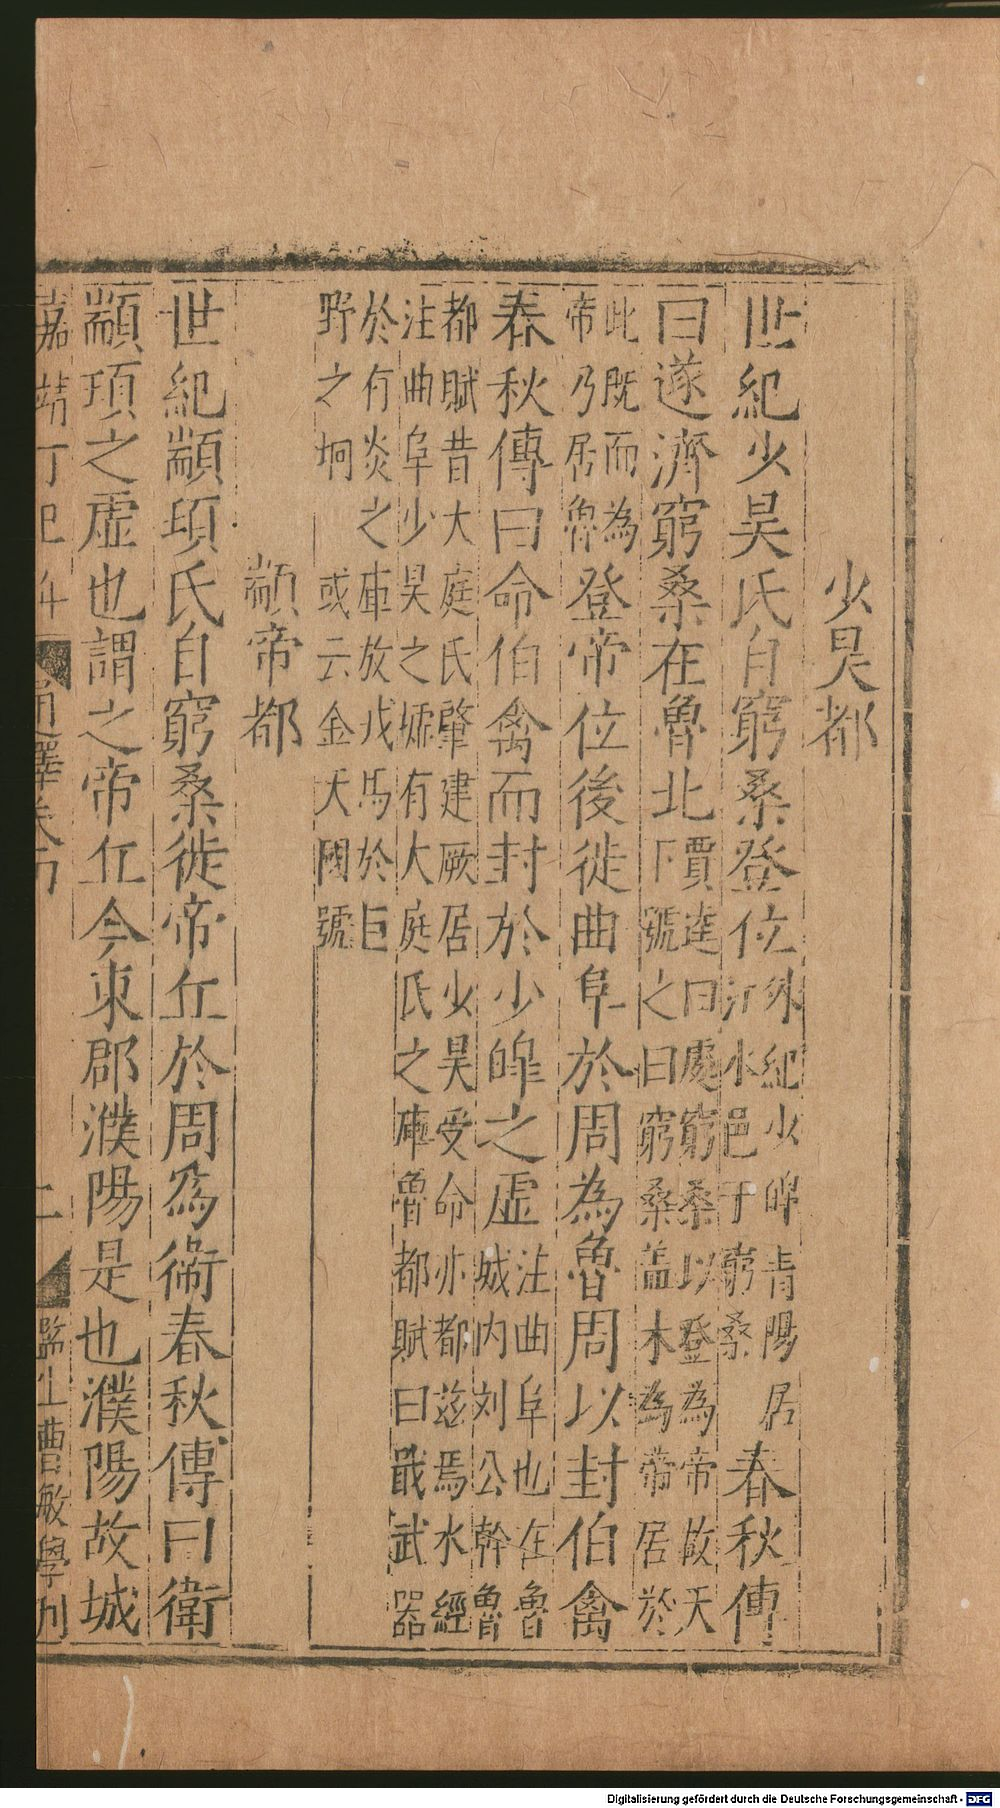 少昊都
世紀少昊氏自窮桑登位外紀少皥青陽居江水邑于窮桑春秋傳
曰遂濟窮桑在魯北賈逵曰處窮桑以登為帝故天下號之曰窮桑盖木為帝居於
此既而為帝乃居魯登帝位後徙曲阜於周為魯周以封伯禽
春秋傳曰命伯禽而封於少皥之虛注曲阜也在魯城内刘公幹魯
都賦昔大庭氏肇建厥居少昊受命亦都兹焉水經注曲阜少昊之墟有大庭氏之庫魯都賦曰戢武器
於有炎之庫放戎馬於巨野之坰或云金天國號
顓帝都
世紀顓頊氏自窮桑徙帝丘於周爲衛春秋傳曰衛
顓頊之虛也謂之帝丘今東郡濮陽是也濮陽故城
嘉靖丁巳年 通釋卷 二 監生曹敏學刊
Digitalisierung gefördert durch die Deutsche Forschungsgemeinschaft - DFG